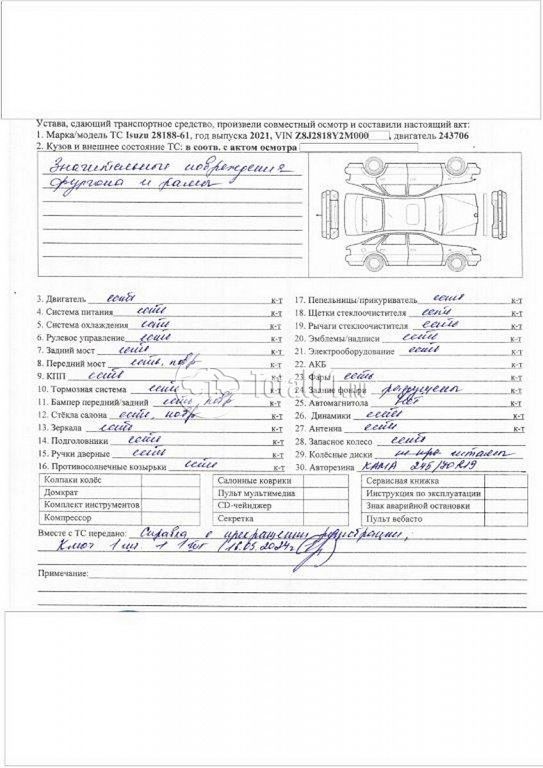 Устава, сдающий транспортное средство, произвели совместный осмотр и составили настоящий акт:
1. Марка/модель ТС Isuzu 28188-61, год выпуска 2021, VIN Z8J2818Y2M000 , двигатель 243706
2. Кузов и внешнее состояние ТС: в соотв. с актом осмотра
Значительные повреждения
фургона и рамы
3. Двигатель есть к-т
4. Система питания есть к-т
5. Система охлаждения есть к-т
6. Рулевое управление есть к-т
7. Задний мост есть к-т
8. Передний мост есть, повр к-т
9. КПП есть к-т
10. Тормозная система есть к-т
11. Бампер передний/задний есть, повр к-т
12. Стёкла салона есть, повр к-т
13. Зеркала есть к-т
14. Подголовники есть к-т
15. Ручки дверные есть к-т
16. Противосолнечные козырьки есть к-т
17. Пепельницы/прикуриватель есть к-т
18. Щетки стеклоочистителя есть к-т
19. Рычаги стеклоочистителя есть к-т
20. Эмблемы/надписи есть к-т
21. Электрооборудование есть к-т
22. АКБ к-т
23. Фары есть к-т
24. Задние фонари разрушены к-т
25. Автомагнитола нет к-т
26. Динамики есть к-т
27. Антенна есть к-т
28. Запасное колесо есть к-т
29. Колёсные диски к-т
30. Авторезина КАМА 245/70R19
Колпаки колёс Салонные коврики Сервисная книжка
Домкрат Пульт мультимедиа Инструкция по эксплуатации
Комплект инструментов CD-чейнджер Знак аварийной остановки
Компрессор Секретка Пульт вебасто
Вместе с ТС передано: Справка о прекращении регистрации,
Ключ 1 шт 16.05.2024г
Примечание: